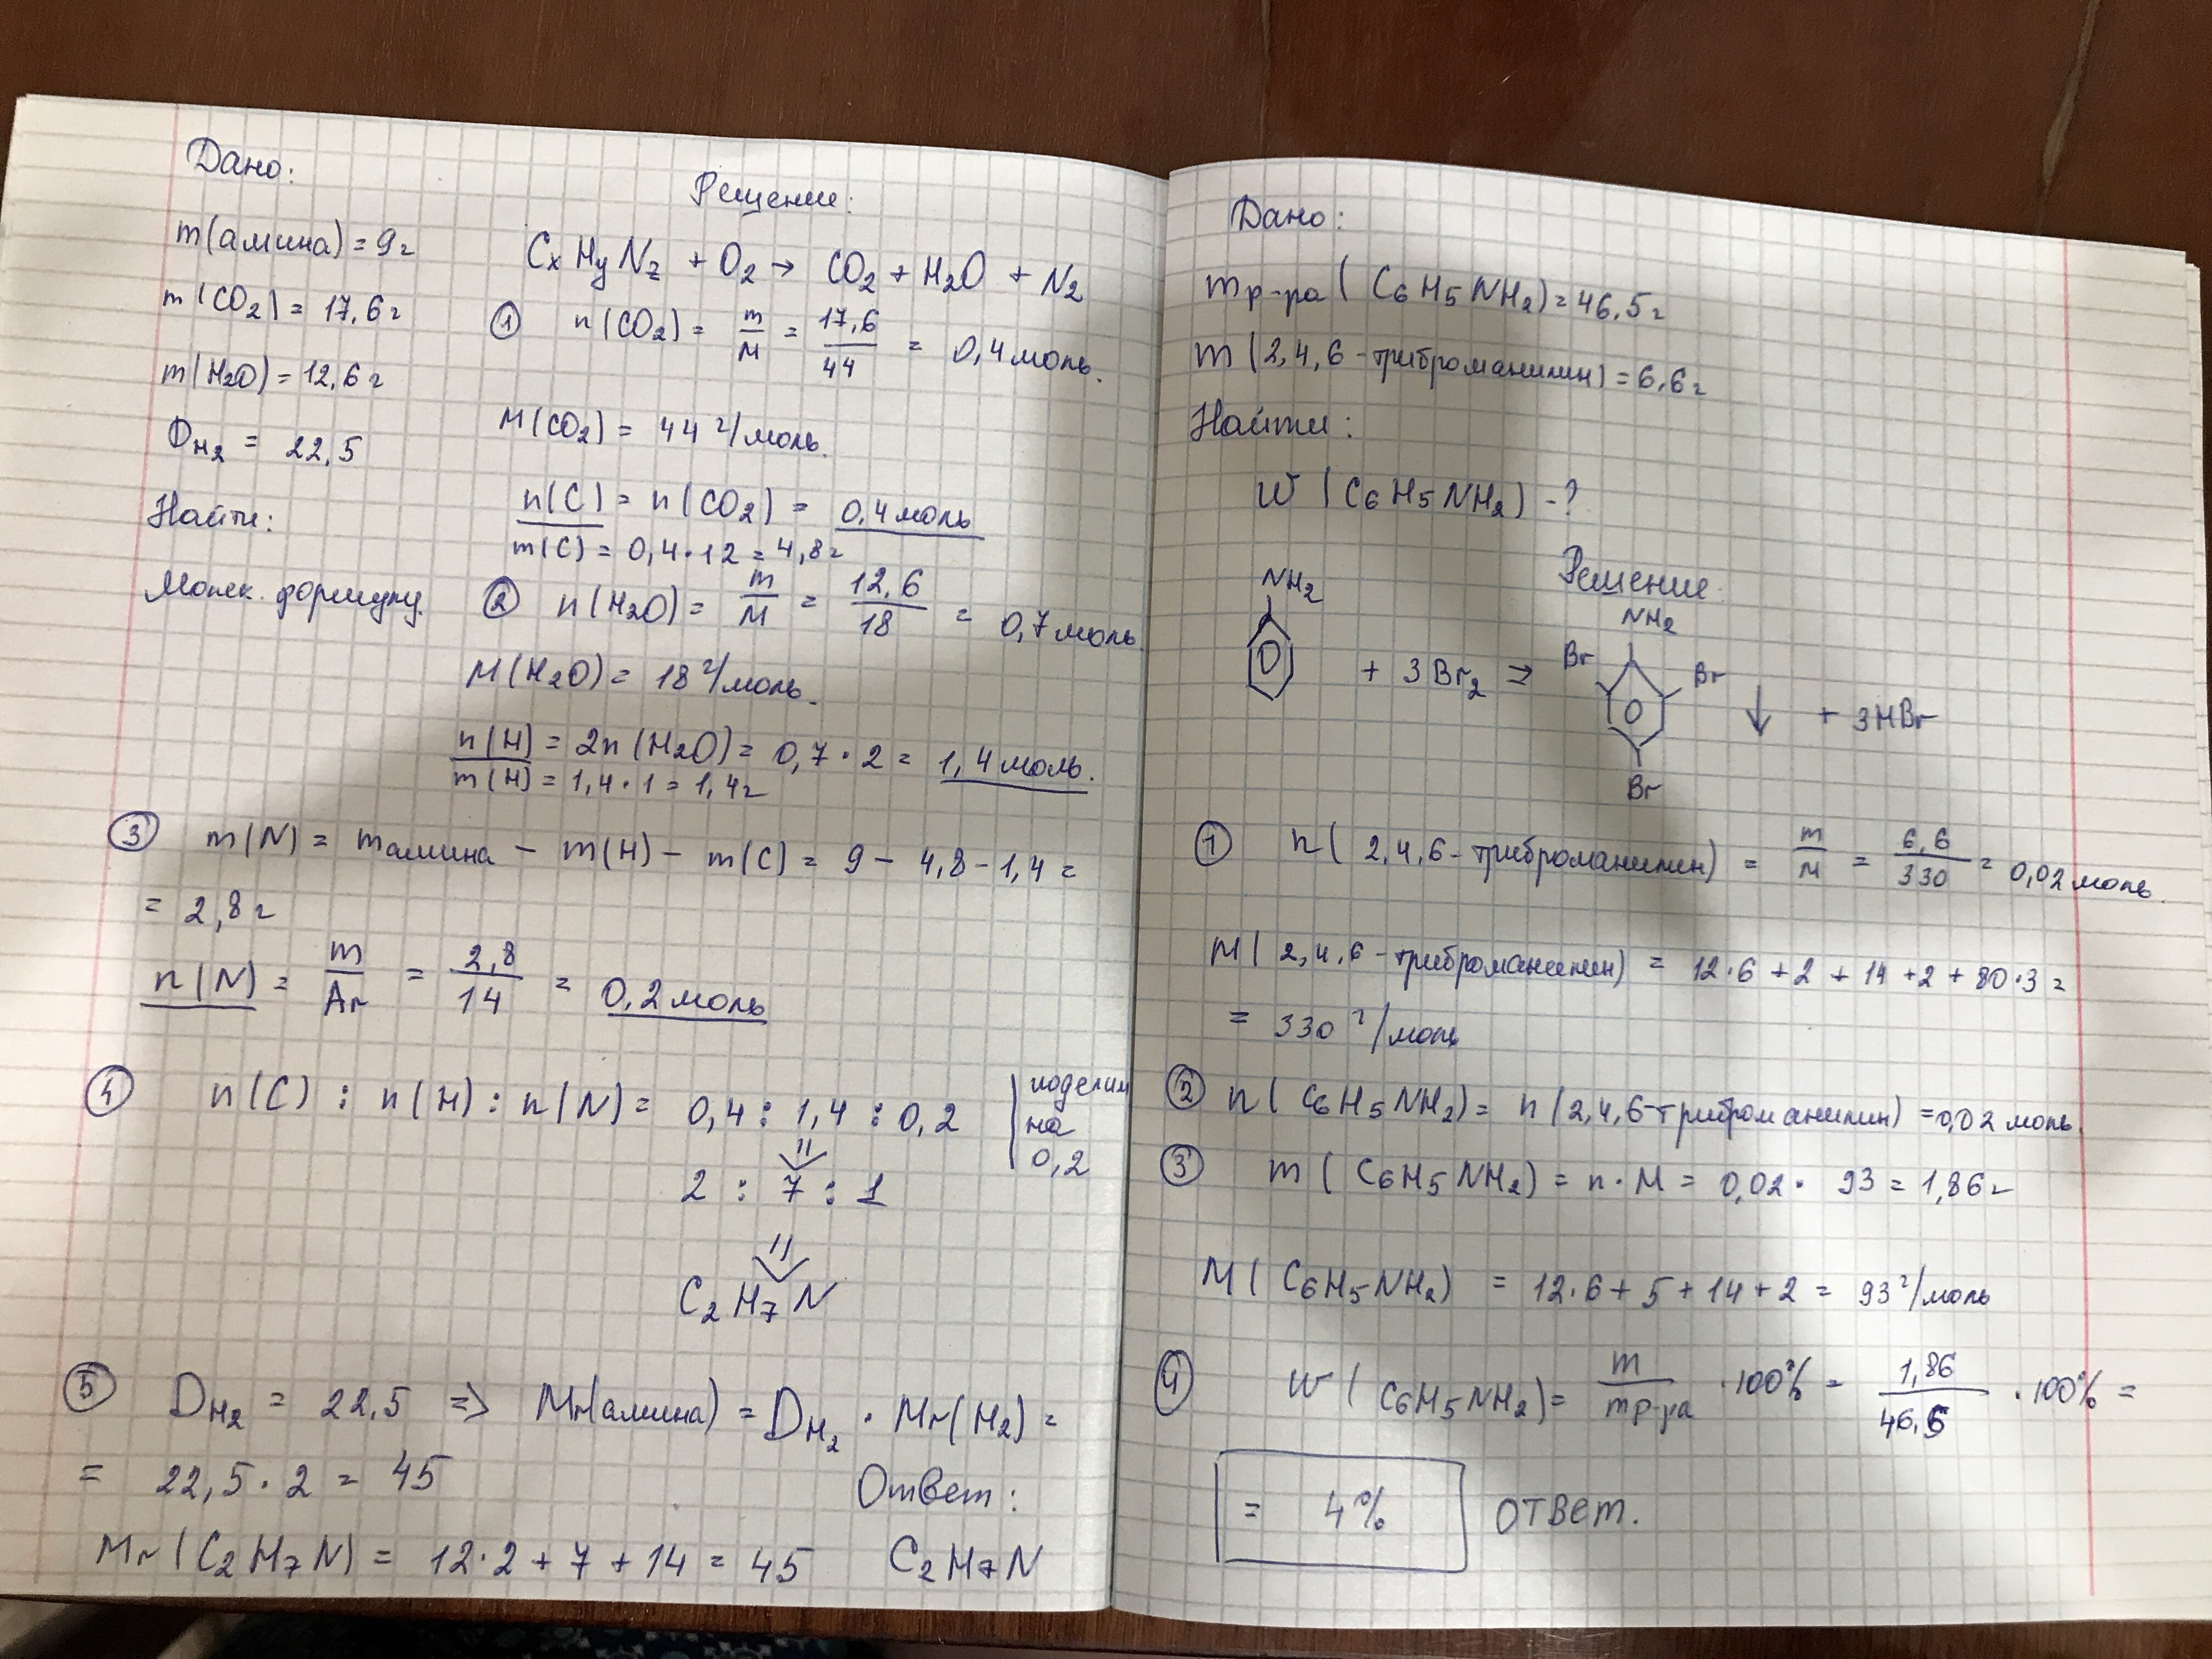 Дано:
m(амина) = 9г
m(CO2) = 17,6г
m(H2O) = 12,6г
DH2 = 22,5
Найти:
Молек. формулу.
Решение:
CxHyNz + O2 → CO2 + H2O + N2
① n(CO2) = m/M = 17,6/44 = 0,4 моль.
M(CO2) = 44 г/моль.
n(C) = n(CO2) = 0,4 моль
m(C) = 0,4·12 = 4,8г
② n(H2O) = m/M = 12,6/18 = 0,7 моль
M(H2O) = 18 г/моль.
n(H) = 2n(H2O) = 0,7·2 = 1,4 моль.
m(H) = 1,4·1 = 1,4г
③ m(N) = mамина − m(H) − m(C) = 9 − 4,8 − 1,4 =
= 2,8г
n(N) = m/Ar = 2,8/14 = 0,2 моль
④ n(C) : n(H) : n(N) = 0,4 : 1,4 : 0,2 | поделим
на
0,2
2 : 7 : 1
C2H7N
⑤ DH2 = 22,5 => Mr(амина) = DH2 · Mr(H2) =
= 22,5·2 = 45
Mr(C2H7N) = 12·2 + 7 + 14 = 45
Ответ:
C2H7N
Дано:
mр-ра(C6H5NH2) = 46,5г
m(2,4,6-триброманилин) = 6,6г
Найти:
W(C6H5NH2) -?
Решение
NH2
+ 3Br2 →
NH2
Br
Br
Br
↓ + 3HBr
① n(2,4,6-триброманилин) = m/M = 6,6/330 = 0,02 моль.
M(2,4,6-триброманилин) = 12·6 + 2 + 14 + 2 + 80·3 =
= 330 г/моль
② n(C6H5NH2) = n(2,4,6-триброманилин) = 0,02 моль.
③ m(C6H5NH2) = n·M = 0,02· 93 = 1,86г
M(C6H5NH2) = 12·6 + 5 + 14 + 2 = 93 г/моль
④ W(C6H5NH2) = m/mр-ра ·100% = 1,86/46,5 ·100% =
= 4% ОТВЕТ.